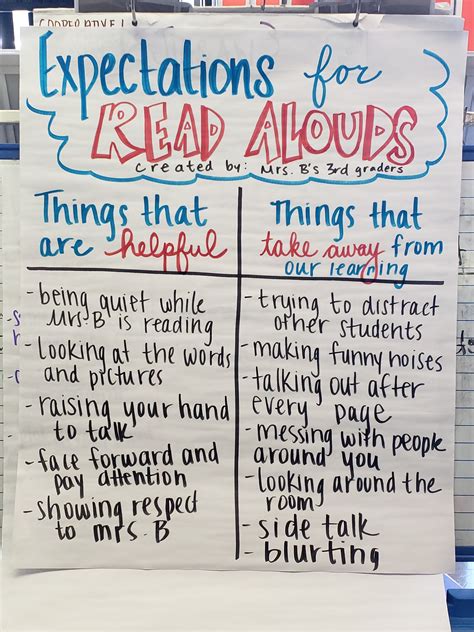 COOPERATIVE!
Expectations for
READ ALOUDS
created by: Mrs. B's 3rd graders
Things that
are helpful
- being quiet while
Mrs. B is reading
- looking at the words
and pictures
- raising your hand
to talk
- face forward and
pay attention
- showing respect
to mrs. B
Things that
take away from
our learning
- trying to distract
other students
- making funny noises
- talking out after
every page
- messing with people
around you
- looking around the
room
- side talk
- blurting